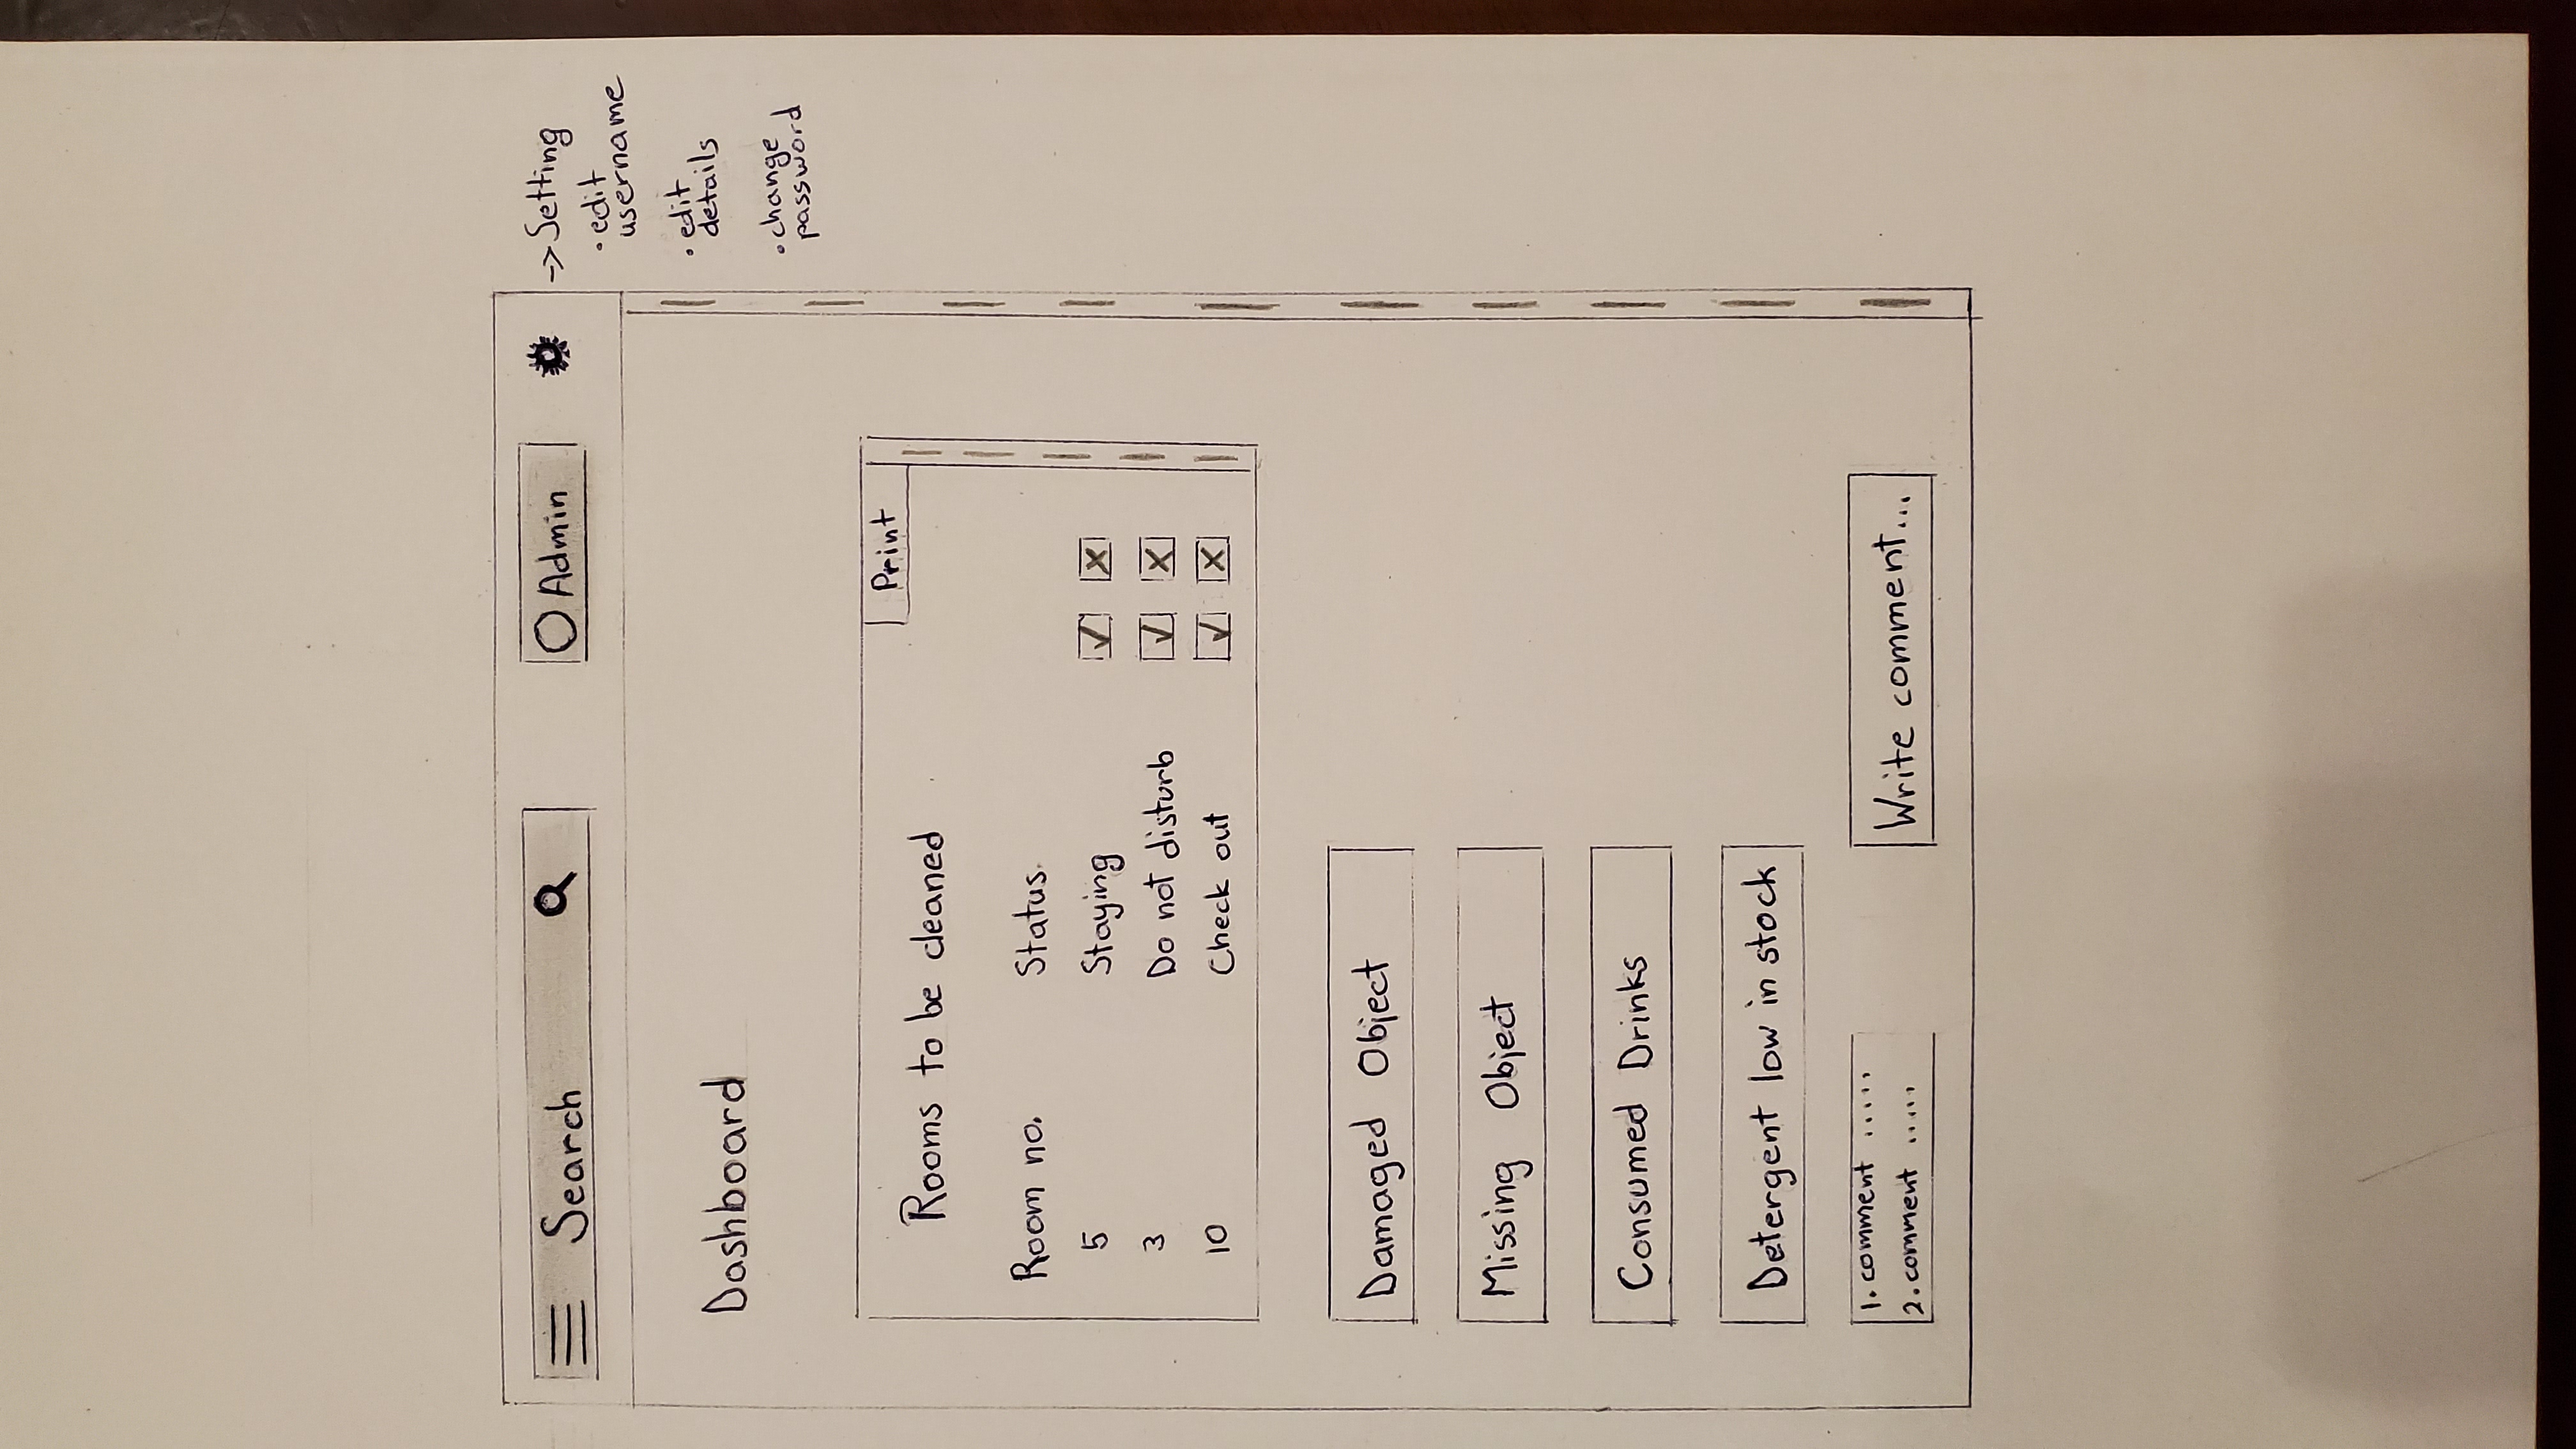 Search
Admin
-> Setting
• edit
username
• edit
details
• change
password
Dashboard
Print
Rooms to be cleaned
Room no. Status
5 Staying
3 Do not disturb
10 Check out
Damaged Object
Missing Object
Consumed Drinks
Detergent low in stock
1. comment .....
2. comment .....
Write comment...